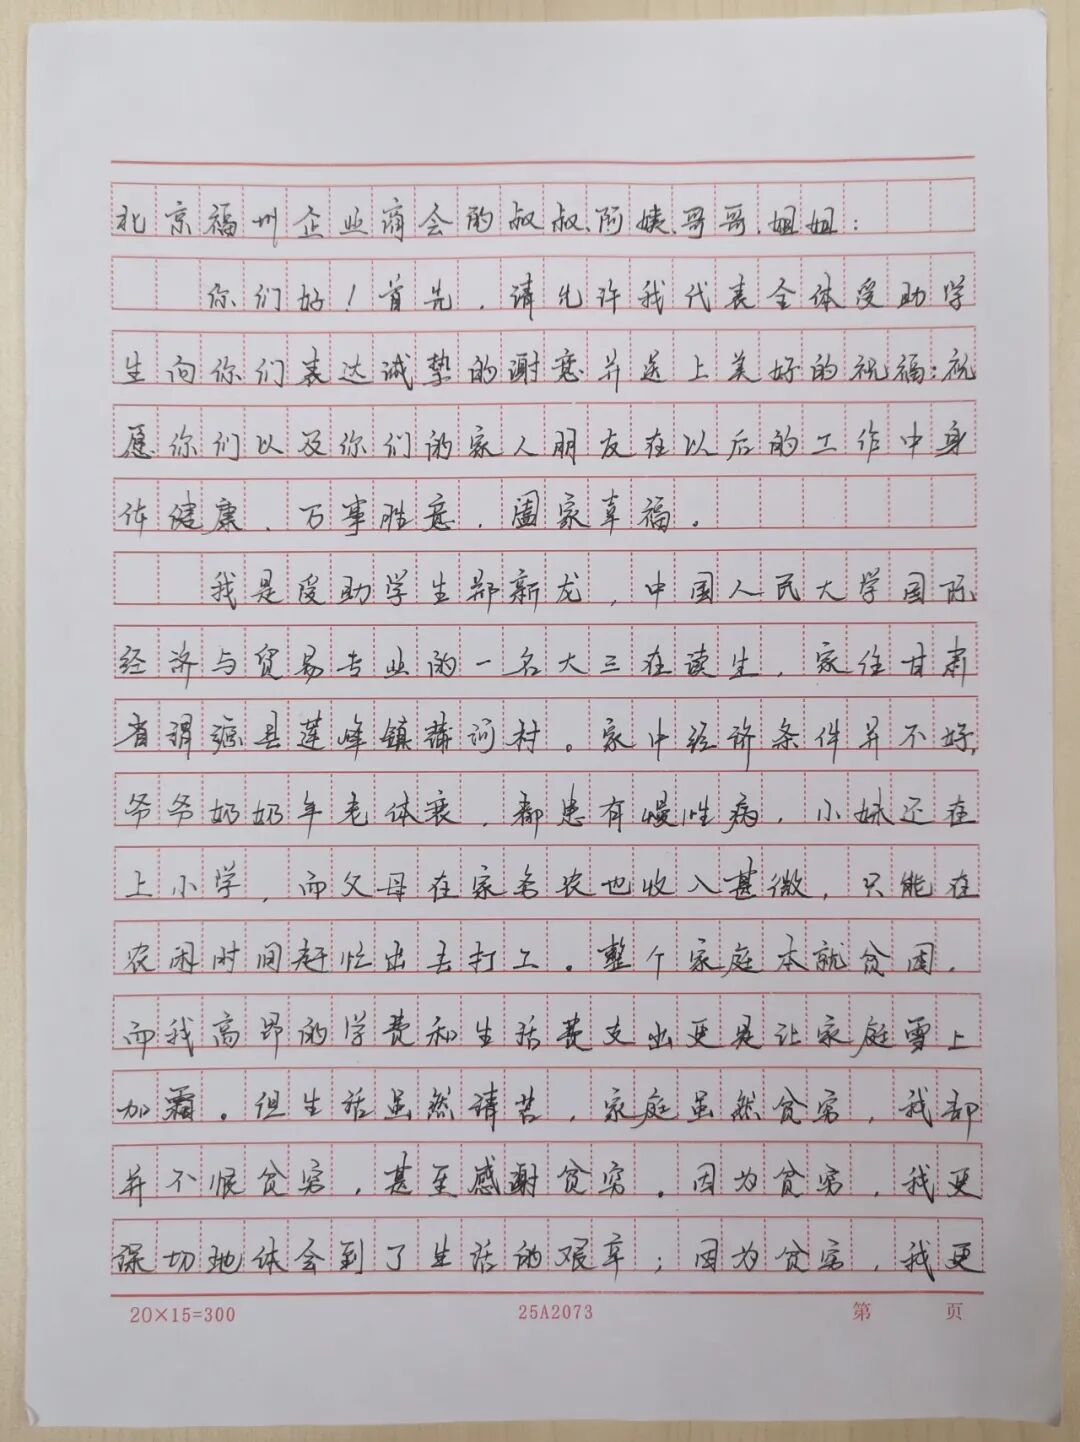 北京福州企业商会的叔叔、阿姨、哥哥、姐姐：
你们好！首先，请允许我代表全体受助学
生向你们表达诚挚的谢意并送上美好的祝福：祝
愿你们以及你们的家人朋友在以后的工作中身
体健康，万事胜意，阖家幸福。
我是受助学生郑新龙，中国人民大学国际
经济与贸易专业的一名大三在读生，家住甘肃
省渭源县莲峰镇蒲河村。家中经济条件并不好，
爷爷奶奶年老体衰，都患有慢性病，小妹还在
上小学，而父母在家务农也收入甚微，只能在
农闲时间赶忙出去打工。整个家庭本就贫困，
而我高昂的学费和生活费支出更是让家庭雪上
加霜。但生活虽然清苦，家庭虽然贫穷，我却
并不恨贫穷，甚至感谢贫穷。因为贫穷，我更
深切地体会到了生活的艰辛；因为贫穷，我更
20×15=300 25A2073 第 页